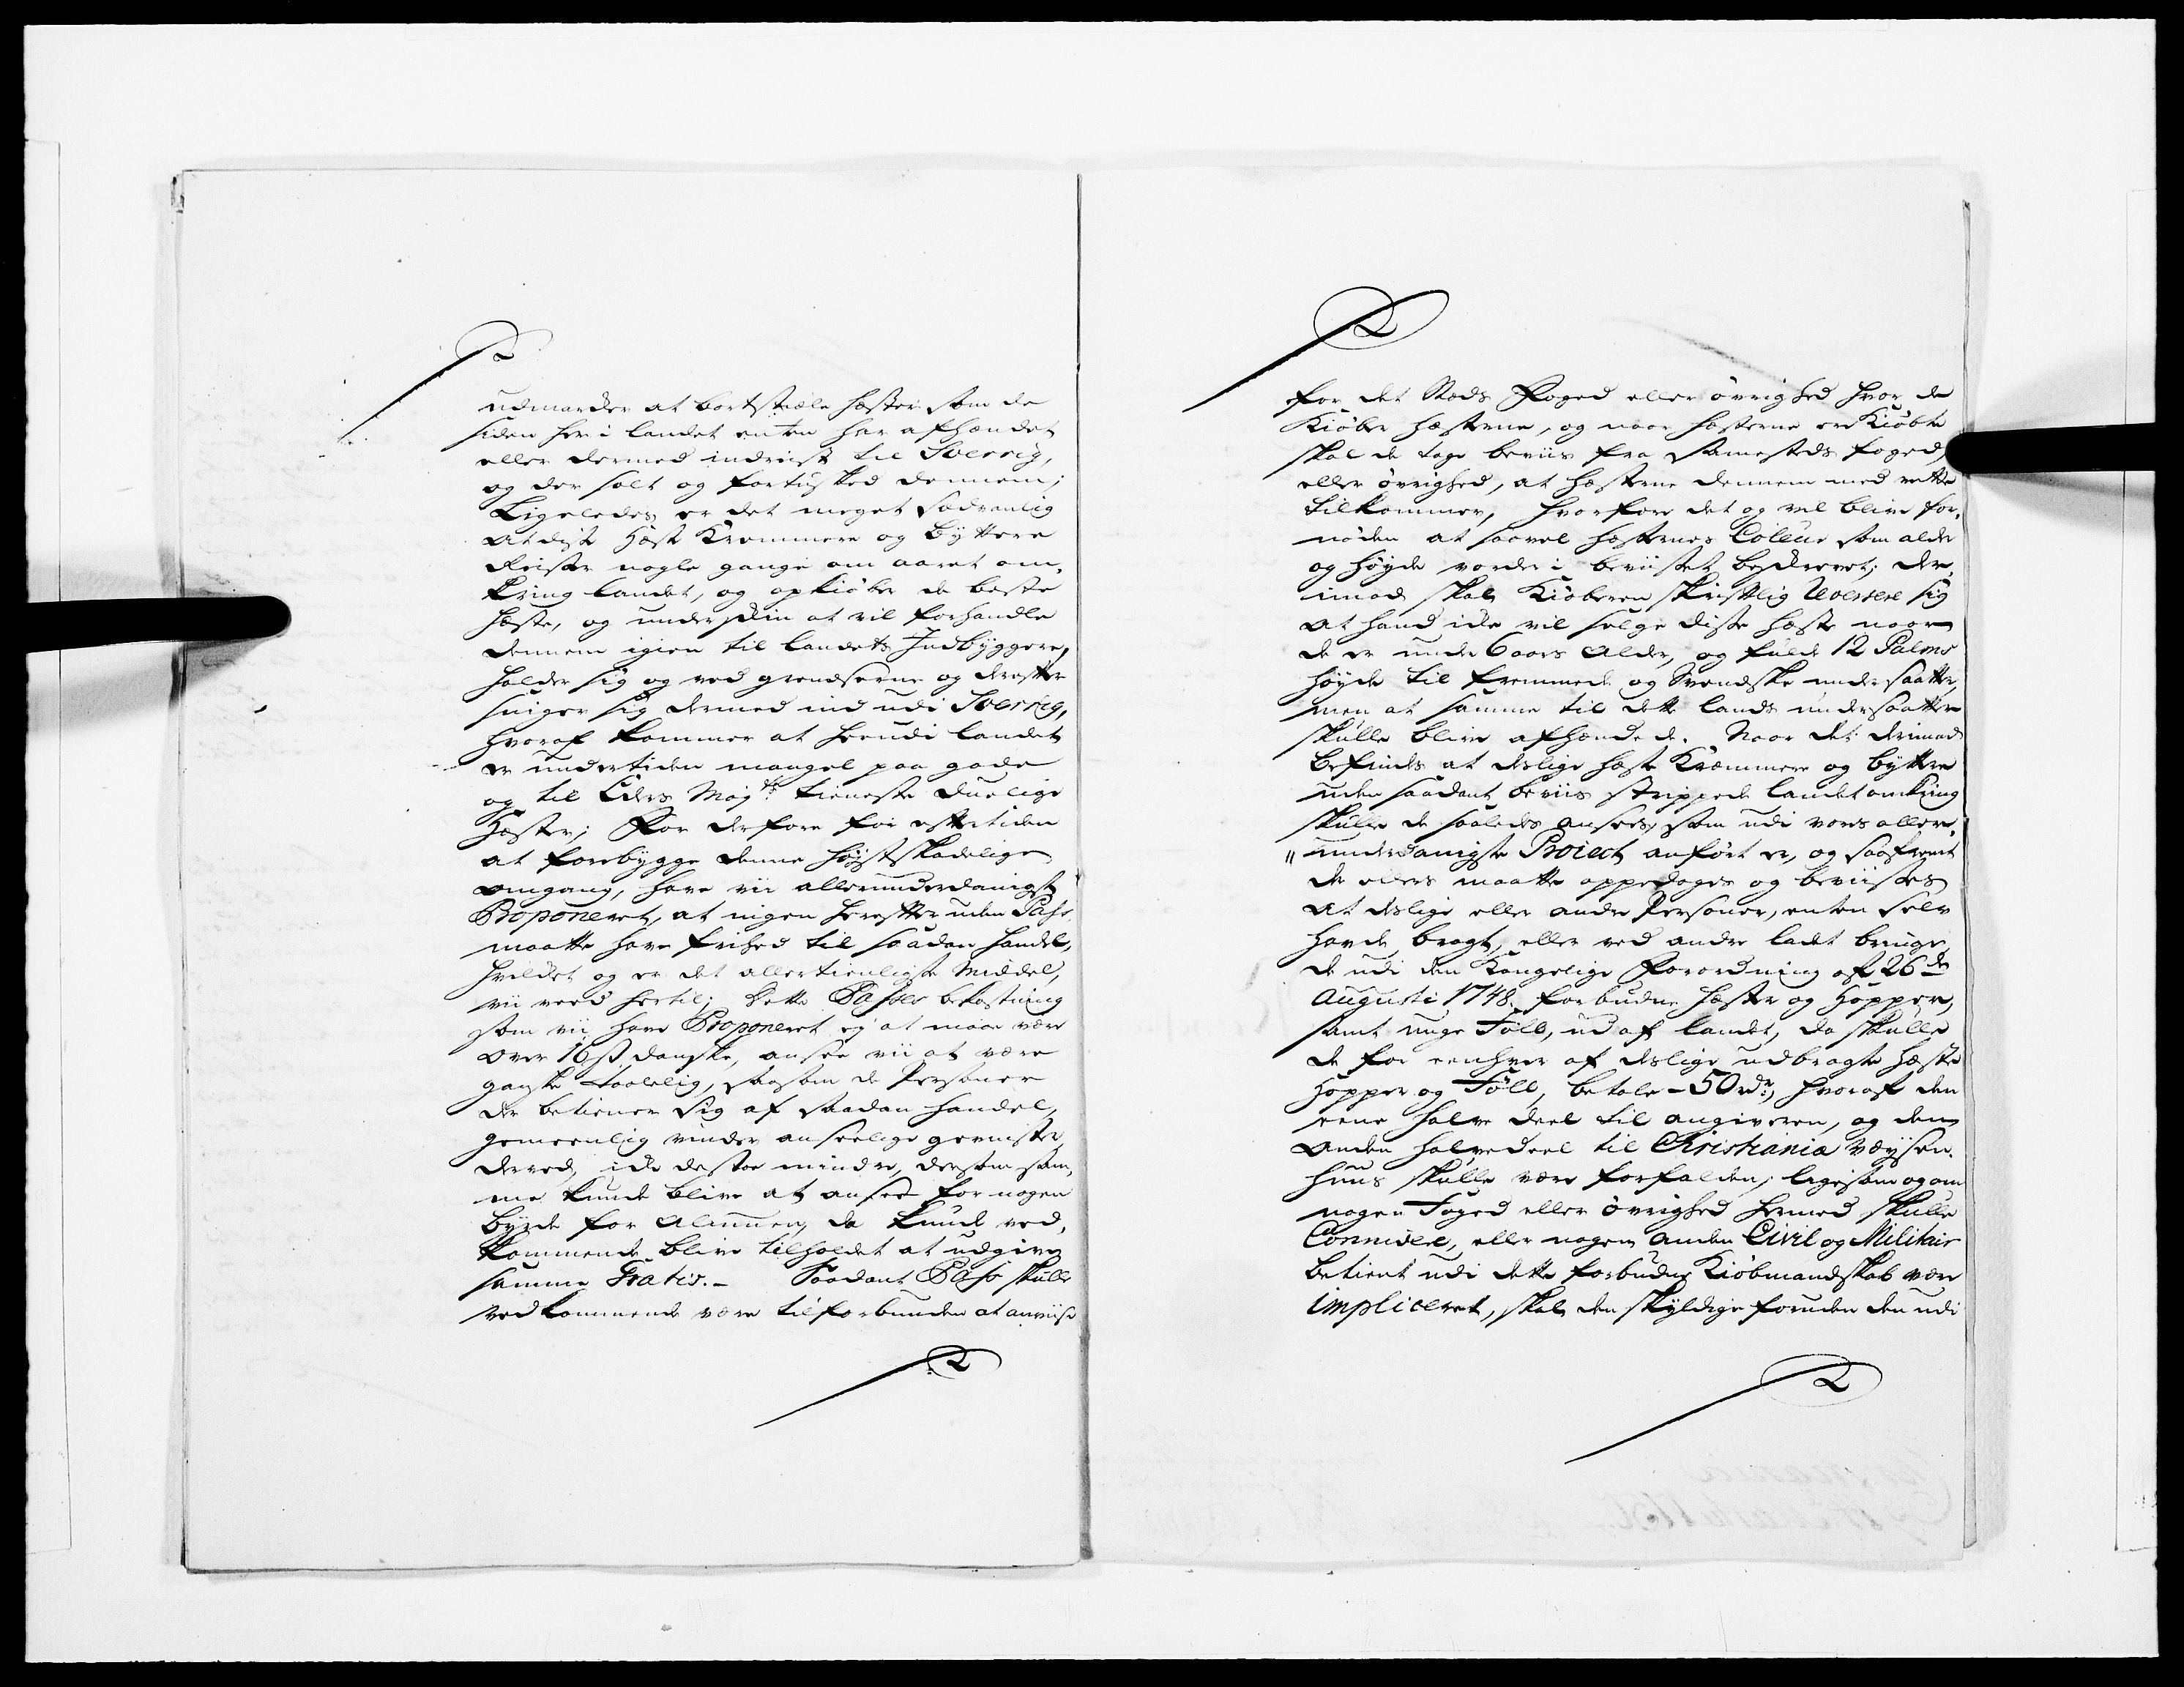 udmarker at bortstiæle hæster som de
siden her i landet enten har afhændet
eller dermed indreist til Sverrig,
og der solt og fortusked dennem;
Ligeledes er det meget sædvanlig
at disse Hæste Kremmere og byttere
Reiser nogle gange om aaret om-
kring landet, og opkiøber de beste
hæste, og under skin at vil forhandle
dennem igien til landets Indbyggere,
holder sig og ved grendserne og derefter
sniger sig dermed ind udi Sverrig,
hvoraf kommer at herudi landet
er undertiden mangel paa gode
og til Eders Mayts tieneste duelige
Hæster; For derfore for eftertiden
at forebygge denne høystskadelige
omgang, have vii allerunderdanigst
Proponeret, at ingen herefter uden Pass
maatte have frihed til saadan handel,
hvilket og er det allertienligste Middel,
vii veed hertil; Dette Passes bekostning
som vii have Proponeret ey at maae være
over 16 s. danske, ansee vii at være
ganske taalelig, saasom de Personer
der betiener sig af saadan handel,
gemeenlig vinder anseelige gevinster
derved, ikke desto mindre, dersom sam-
me kunde blive at ansee for nogen
byrde for Almuen, da kunde ved-
kommende blive tilholdet at udgive
samme Gratis. – Saadant Pass skulle
vedkommende være tilforbunden at anviise
for det Steds Foged eller øvrighed hvor de
Kiøber hæsterne, og naar hæsterne ere Kiøbte
skal de tage beviis fra sammesteds foged,
eller øvrighed, at hæsterne dennem med rette
tilkommer, hvorfore det og vil blive for-
nøden at saavel hæsternes Coleur som alder
og høyde vorder i beviiset beskrevet; der-
imod skal Kiøberen skriftlig Reversere sig
at hand icke vil selge disse hæste naar
de er under 6 aars Alder, og fulde 12 Palms
høyde til fremmede og Svendske undersaatter,
men at samme til dette lands undersaatter
skulle blive afhændede. Naar det derimod
befindes at deslige hæste Kræmmere og byttere
uden saadant beviis strippede landet omkring
skulle de saaledes ansees, som udi vores aller-
" underdanigste Proiect anført er, og saafremt
de ellers maatte oppedages og beviises
at deslige eller andre Personer, enten selv
havde bragt, eller ved andre ladet bringe,
de udi den Kongelige Forordning af 26de
Augusti 1748 forbudne hæster og Hopper,
samt unge Føll, ud af landet, da skulle
de for eenhver af deslige udbragte hæste
Hopper og Føll, betale – 50 rdr, hvoraf den
eene halve deel til angiveren, og den
anden halvedeel til Christiania Væysen-
huus skulle være forfalden; ligesom og om
nogen Foged eller øvrighed hermed skulle
Connivere, eller nogen anden Civil og Militair
betient udi dette forbudne Kiøbmandskab være
impliceret, skal den skyldige foruden den udi